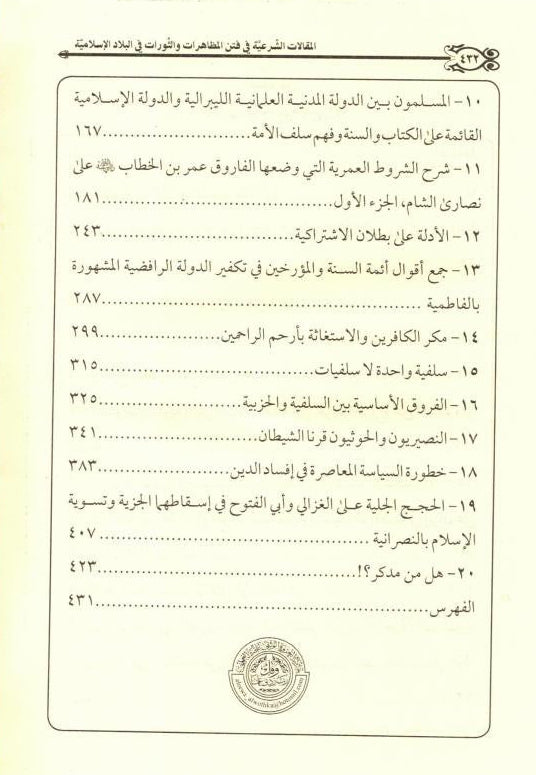 المقالات الشرعيَّة في فتن المظاهرات والثَّورات في البلاد الإسلاميَّة
٤٣٢
١٠- المسلمون بين الدولة المدنية العلمانية الليبرالية والدولة الإسلامية
القائمة على الكتاب والسنة وفهم سلف الأمة..........................١٦٧
١١- شرح الشروط العمرية التي وضعها الفاروق عمر بن الخطاب ﵁ على
نصارى الشام، الجزء الأول..........................................١٨١
١٢- الأدلة على بطلان الاشتراكية..................................٢٤٣
١٣- جمع أقوال أئمة السنة والمؤرخين في تكفير الدولة الرافضية المشهورة
بالفاطمية ........................................................٢٨٧
١٤- مكر الكافرين والاستغاثة بأرحم الراحمين.....................٢٩٩
١٥- سلفية واحدة لا سلفيات........................................٣١٥
١٦- الفروق الأساسية بين السلفية والحزبية.........................٣٢٥
١٧- النصيريون والحوثيون قرنا الشيطان............................٣٤١
١٨- خطورة السياسة المعاصرة في إفساد الدين.......................٣٨٣
١٩- الحجج الجلية على الغزالي وأبي الفتوح في إسقاطهما الجزية وتسوية
الإسلام بالنصرانية ................................................٤٠٧
٢٠- هل من مدكر؟!..................................................٤٢٣
الفهرس............................................................٤٣١